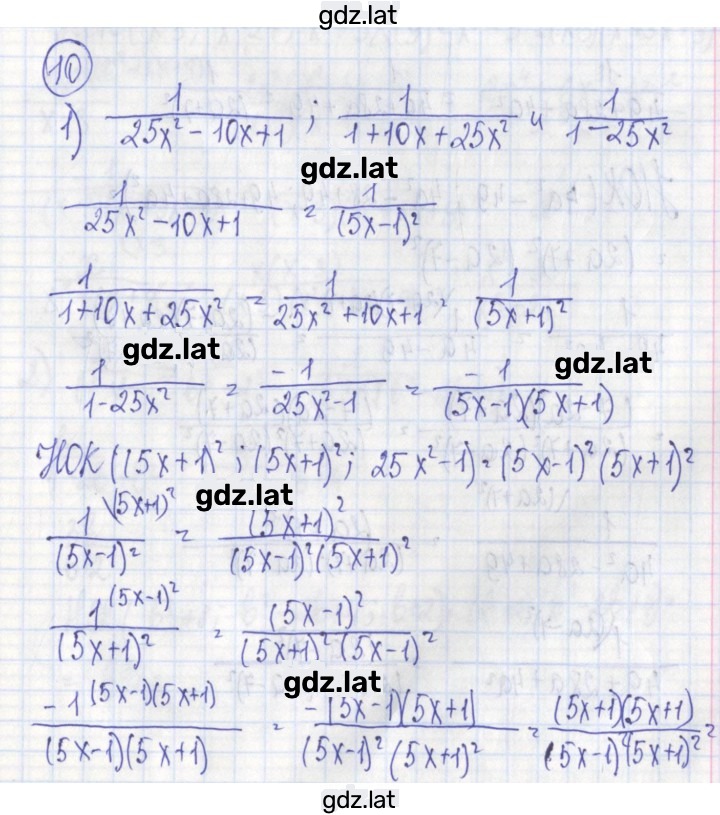 gdz.lat
10
1) 1/(25x² - 10x + 1) ; 1/(1 + 10x + 25x²) и 1/(1 - 25x²)
gdz.lat
1/(25x² - 10x + 1) = 1/(5x-1)²
1/(1 + 10x + 25x²) = 1/(25x² + 10x + 1) = 1/(5x+1)²
gdz.lat gdz.lat
1/(1 - 25x²) = -1/(25x² - 1) = -1/((5x-1)(5x+1))
НОК ((5x+1)² ; (5x+1)² ; 25x² - 1) = (5x-1)² (5x+1)²
gdz.lat
1\(5x+1)²/(5x-1)² = (5x+1)²/((5x-1)² (5x+1)²)
1(5x-1)²/(5x+1)² = (5x-1)²/((5x+1)² (5x-1)²)
gdz.lat
-1(5x-1)(5x+1)/((5x-1)(5x+1)) = -(5x-1)(5x+1)/((5x-1)² (5x+1)²) = (5x+1)(5x+1)/((5x-1)²(5x+1)²) =
gdz.lat